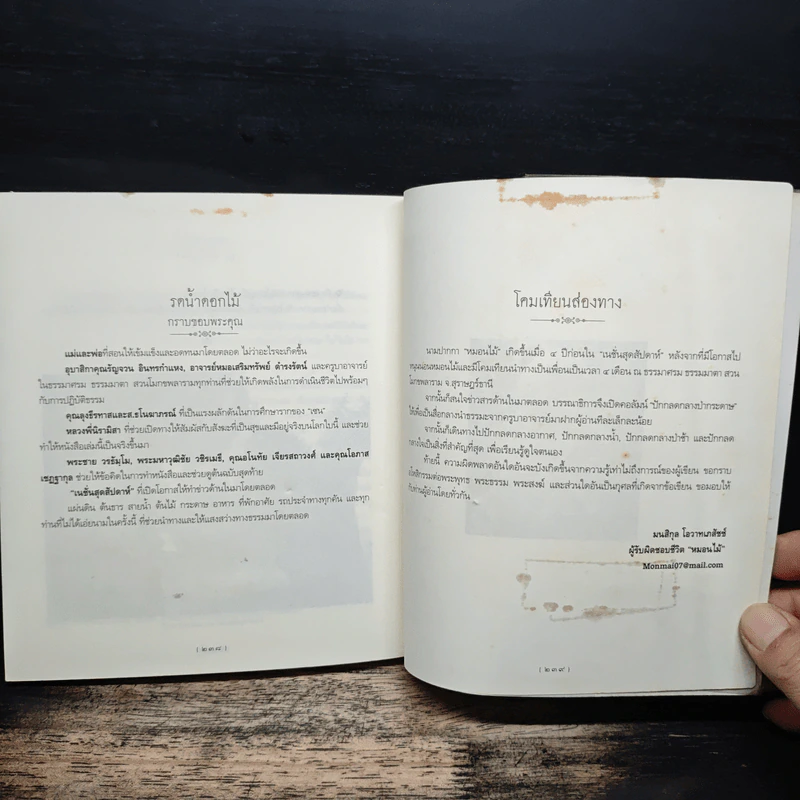 รดน้ำดอกไม้
กราบขอบพระคุณ
แม่และพ่อที่สอนให้เข้มแข็งและอดทนมาโดยตลอด ไม่ว่าอะไรจะเกิดขึ้น
อุบาสิกาคุณรัญจวน อินทรกำแหง, อาจารย์หมอเสริมทรัพย์ ดำรงรัตน์ และครูบาอาจารย์
ในธรรมาศรม ธรรมมาตา สวนโมกขพลารามทุกท่านที่ช่วยให้เกิดพลังในการดำเนินชีวิตไปพร้อมๆ
กับการปฏิบัติธรรม
คุณลุงธีรทาสและส.ธโนฆาภรณ์ ที่เป็นแรงผลักดันในการศึกษารากของ "เซน"
หลวงพี่นิรามิสา ที่ช่วยเปิดทางให้สัมผัสกับสังฆะที่เป็นสุขและมีอยู่จริงบนโลกใบนี้ และช่วย
ทำให้หนังสือเล่มนี้เป็นจริงขึ้นมา
พระชาย วรธัมโม, พระมหาวุฒิชัย วชิรเมธี, คุณอโนทัย เจียรสถาวงศ์ และคุณโอภาส
เชฏฐากุล ช่วยให้ข้อคิดในการทำหนังสือและช่วยดูต้นฉบับสุดท้าย
"เนชั่นสุดสัปดาห์" ที่เปิดโอกาสให้ทำข่าวด้านในมาโดยตลอด
แผ่นดิน ต้นธาร สายน้ำ ต้นไม้ กระดาษ อาหาร ที่พักอาศัย รถประจำทางทุกคัน และทุก
ท่านที่ไม่ได้เอ่ยนามในครั้งนี้ ที่ช่วยนำทางและให้แสงสว่างทางธรรมมาโดยตลอด
( ๒๓๘ )
โคมเทียนส่องทาง
นามปากกา "หมอนไม้" เกิดขึ้นเมื่อ ๔ ปีก่อนใน "เนชั่นสุดสัปดาห์" หลังจากที่มีโอกาสไป
หนุนนอนหมอนไม้และมีโคมเทียนนำทางเป็นเพื่อนเป็นเวลา ๔ เดือน ณ ธรรมาศรม ธรรมมาตา สวน
โมกขพลาราม จ.สุราษฎร์ธานี
จากนั้นก็สนใจข่าวสารด้านในมาตลอด บรรณาธิการจึงเปิดคอลัมน์ "ปักกลดกลางป่ากระดาษ"
ให้เพื่อเป็นสื่อกลางนำธรรมะจากครูบาอาจารย์มาฝากผู้อ่านทีละเล็กละน้อย
จากนั้นก็เดินทางไปปักกลดกลางอากาศ, ปักกลดกลางน้ำ, ปักกลดกลางป่าช้า และปักกลด
กลางใจเป็นสิ่งที่สำคัญที่สุด เพื่อเรียนรู้ดูใจตนเอง
ท้ายนี้ ความผิดพลาดอันใดอันจะบังเกิดขึ้นจากความรู้เท่าไม่ถึงการณ์ของผู้เขียน ขอกราบ
อโหสิกรรมต่อพระพุทธ พระธรรม พระสงฆ์ และส่วนใดอันเป็นกุศลที่เกิดจากข้อเขียน ขอมอบให้
กับท่านผู้อ่านโดยทั่วกัน
มนสิกุล โอวาทเภสัชช์
ผู้รับผิดชอบชีวิต "หมอนไม้"
Monmai07@mail.com
( ๒๓๙ )